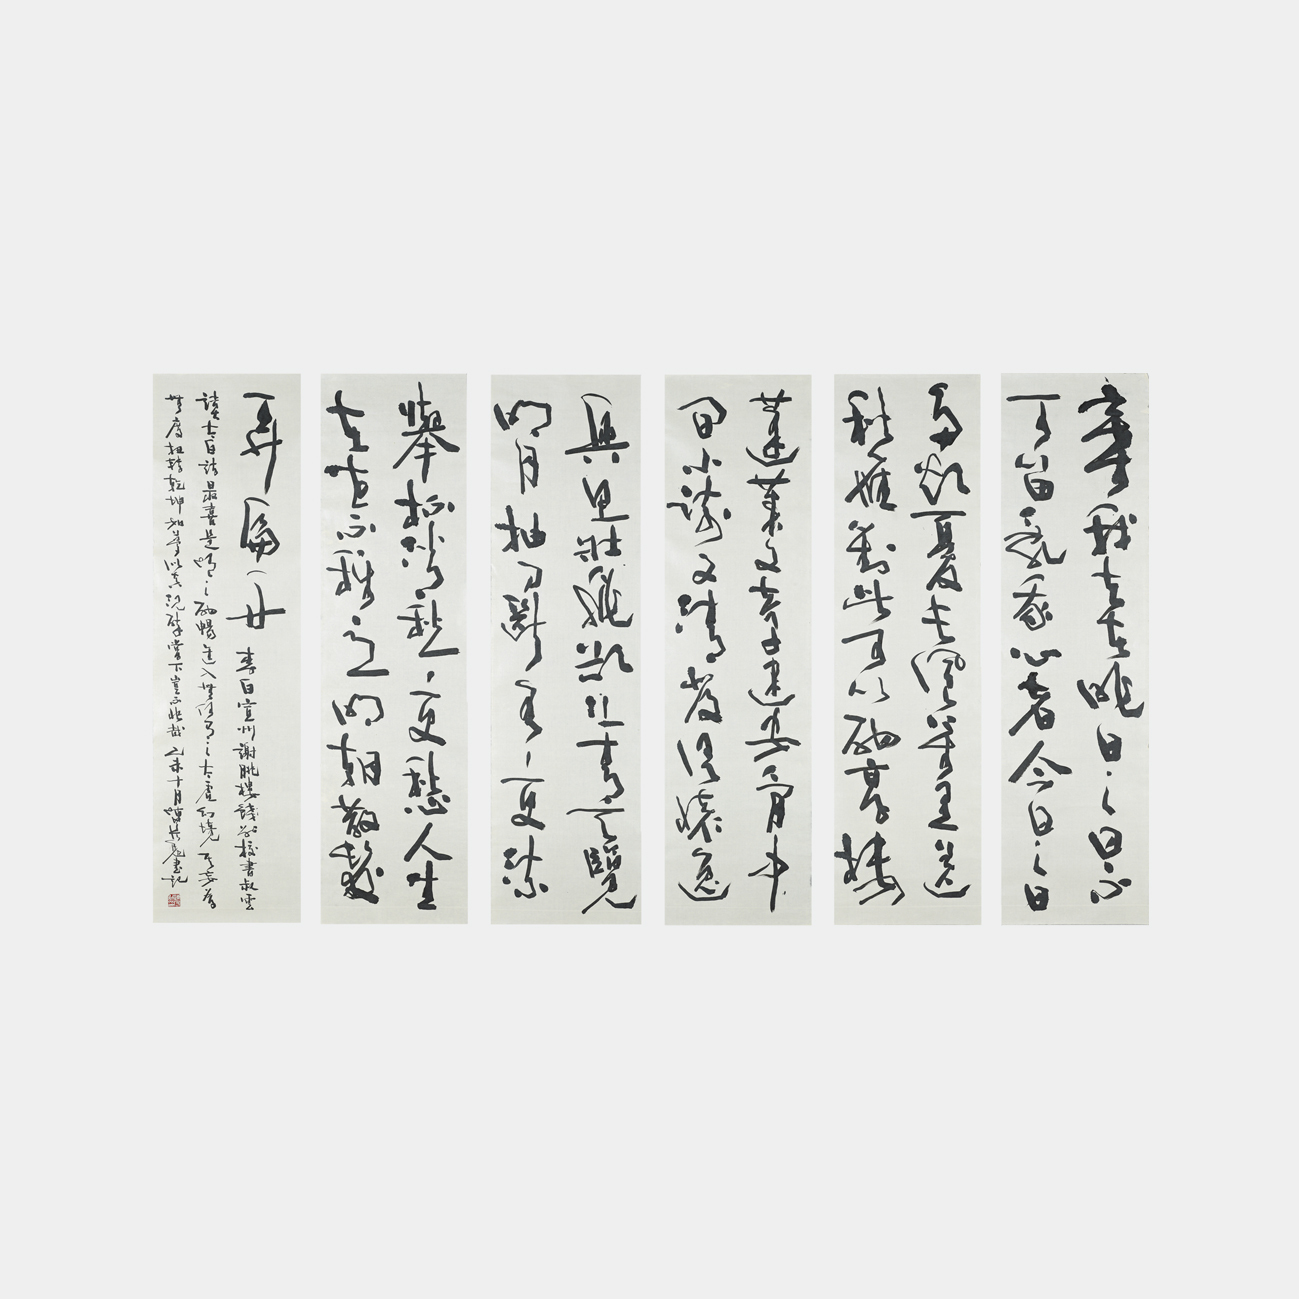 棄我去者昨日之日不
可留亂我心者今日之日
多煩憂長風萬里送
秋雁對此可以酣高樓
蓬萊文章建安骨中
間小謝又清發俱懷逸
興思壯飛欲上青天覽
明月抽刀斷水水更流
舉杯消愁愁更愁人生
在世不稱意明朝散髮
弄扁舟
李白宣州謝朓樓餞別校書叔雲
讀太白詩最喜是之酣暢進入無何有之太虛幻境
無度扭轉乾坤當下豈不悲哉乙未十月書記